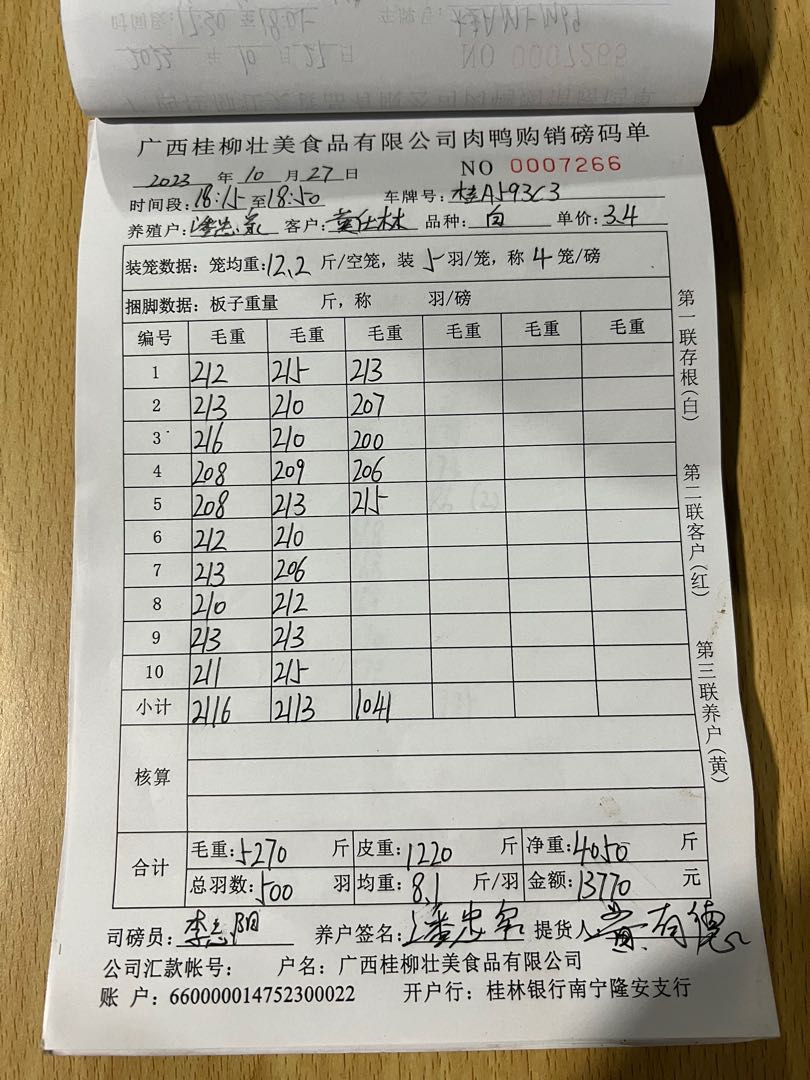 2023 年 10 月 27 日 NO 0007265
广西桂柳壮美食品有限公司肉鸭购销磅码单
2023 年 10 月 27 日 NO 0007266
时间段:18:15至18:50 车牌号:桂A593C3
养殖户: 客户:黄仕林 品种:白 单价:3.4
装笼数据: 笼均重:12.2 斤/空笼,装 5 羽/笼,称 4 笼/磅
捆脚数据: 板子重量 斤,称 羽/磅
编号 毛重 毛重 毛重 毛重 毛重 毛重
1 212 215 213
2 213 210 207
3 216 210 200
4 208 209 206
5 208 213 215
6 212 210
7 213 206
8 210 212
9 213 213
10 211 215
小计 2116 2113 1041
核算
合计 毛重:5270 斤 皮重:1220 斤 净重:4050 斤
总羽数:500 羽 均重:8.1 斤/羽 金额:13770 元
司磅员:李志阳 养户签名: 提货人:黄有德
公司汇款帐号: 户名:广西桂柳壮美食品有限公司
账 户:660000014752300022 开户行:桂林银行南宁隆安支行
第一联存根(白)
第二联客户(红)
第三联养户(黄)